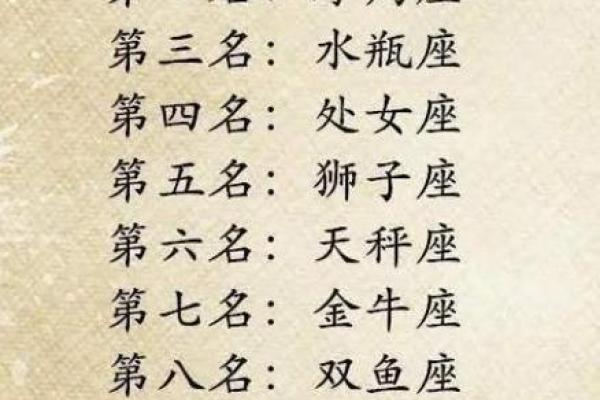 第三名：水瓶座
第四名：处女座
第五名：狮子座
第六名：天秤座
第七名：金牛座
第八名：双鱼座